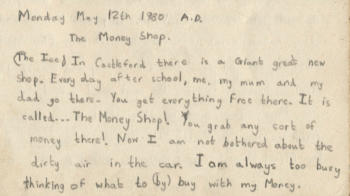 Monday May 12th 1980 A.D.
The Money Shop.
(The Ice) In Castleford there is a Giant great new
shop. Every day after school, me, my mum and my
dad go there. You get everything Free there. It is
called... The Money Shop! You grab any sort of
money there! Now I am not bothered about the
dirty air in the car. I am always too busy
thinking of what to (by) buy with my Money.